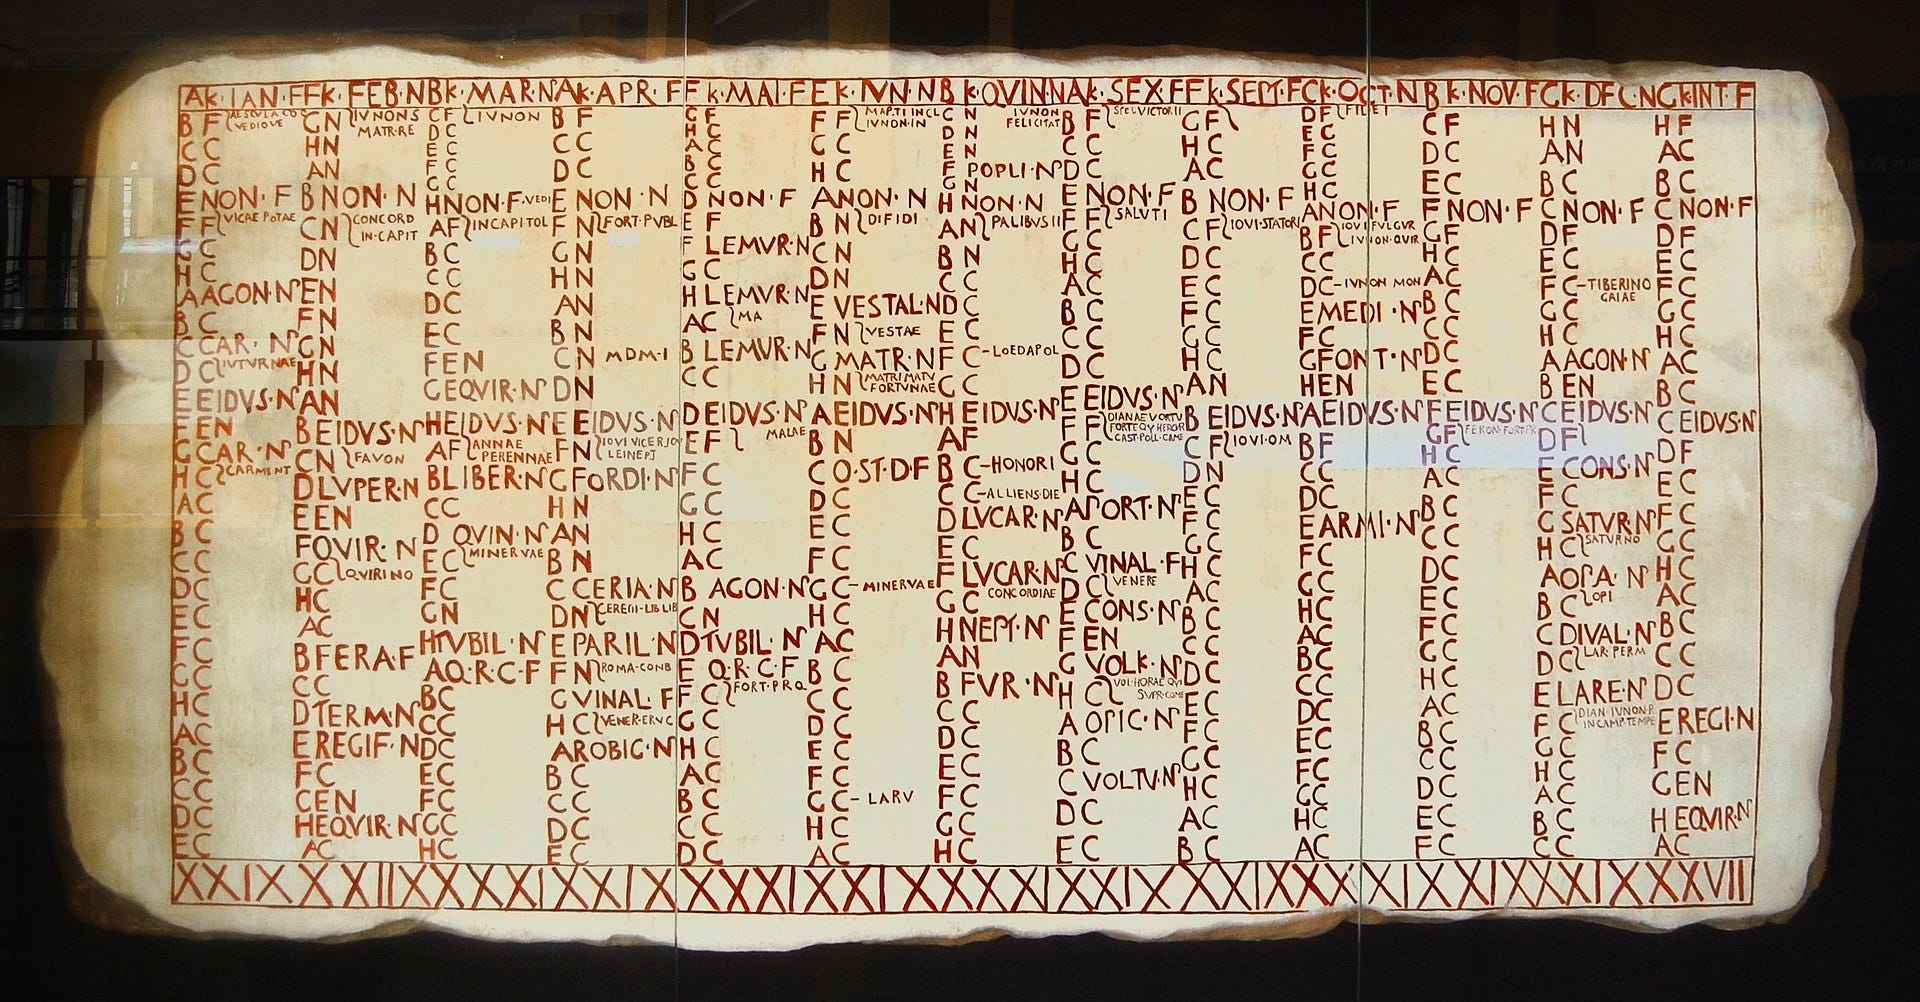 AK·IAN·F FK·FEB·N BK·MAR·N AK·APR·F FK·MAI·F EK·IVN·N BK·QVIN·N AK·SEX·F FK·SEPT·F CK·OCT·N BK·NOV·F GK·DEC·N GK·INT·F
B F
VEDIOVE
C C
D C
E NON·F
F F VICAE POTAE
G C
H C
A AGON·N
B C
C CAR·N
D C IVTVRNAE
E EIDVS·N
F EN
G CAR·N
H C CARMENT
A C
B C
C C
D C
E C
F C
G C
H C
A C
B C
C C
D C
E C
IVNONS
G N MATR·RE
H N
A N
B NON·N
C N CONCORD
IN·CAPIT
D N
E N
F N
G N
H N
A N
B EIDVS·N
C N FAVON
D LVPER·N
E EN
F QVIR·N
G C QVIRINO
H C
A C
B FERA·F
C C
D TERM·N
E REGIF·N
F C
G EN
H EQVIR·N
A C
C F IVNON
D C
E C
F C
G C
H NON·F·VEDI
A F IN CAPITOL
B C
C C
D C
E C
F EN
G EQVIR·N
H EIDVS·N
A F ANNAE
PERENNAE
B LIBER·N
C C
D QVIN·N
E C MINERVAE
F C
G N
H TVBIL·N
A Q·R·C·F
B C
C C
D C
E C
F C
G C
H C
B F
C C
D C
E NON·N
F N FORT·PVBL
G N
H N
A N
B N
C N MDM·I
D N
E EIDVS·N
F N IOVI VICER IOV
LEINEPI
G FORDI·N
H N
A N
B N
C CERIA·N
D N CERERI·LIB LIB
E PARIL·N
F N ROMA·COND
G VINAL·F
H C VENER·ERVC
A ROBIG·N
B C
C C
D C
E C
G F
H C
A C
B C
C C
D NON·F
E F
F LEMVR·N
G C
H LEMVR·N
A C MA
B LEMVR·N
C C
D EIDVS·N
E F MALAE
F C
G C
H C
A C
B AGON·N
C N
D TVBIL·N
E Q·R·C·F
F C FORT·P·R·Q
G C
H C
A C
B C
C C
D C
IVNON·IN
F F
G C
H C
A NON·N
B N DI FIDI
C N
D N
E VESTAL·N
F N VESTAE
G MATR·N
H N MATRI MATV
FORTVNAE
A EIDVS·N
B N
C Q·ST·D·F
D C
E C
F C
G C MINERVAE
H C
A C
B C
C C
D C
E C
F C
G C LARV
H C
A C
IVNON
FELICITAT
C N
D N
E N
F POPLI·N
G N
H NON·N
A N PALIBVS II
B N
C N
D C
E C
F C LOEDAPOL
G C
H EIDVS·N
A F
B C HONORI
C C ALLIENS·DIE
D LVCAR·N
E C
F LVCAR·N
G C CONCORDIAE
H NEPT·N
A N
B FVR·N
C C
D C
E C
F C
G C
H C
B F SPEI VICTORII
C C
D C
E NON·F
F F SALVTI
G C
H C
A C
B C
C C
D C
E EIDVS·N
F F DIANAE VORTV
FORTE QV HERCVR
CAST·POLL·CAME
G C
H C
A PORT·N
B C
C VINAL·F
D C VENERE
E CONS·N
F EN
G VOLK·N
H C
A OPIC·N
B C
C VOLTV·N
D C
E C
G F
H C
A C
B NON·F
C F IOVI·STATORI
D C
E C
F C
G C
H C
A N
B EIDVS·N
C F IOVI·OM
D N
E C
F C
G C
H C
A C
B C
C C
D C
E C
F C
G C
H C
A C
B C
D F FIDEI
E C
F C
G C
H C
A NON·F
B F IOVI FVLGVR
IVNON·QVIR
C C
D C IVNON MON
E MEDI·N
F C
G FONT·N
H EN
A EIDVS·N
B F
C C
D C
E ARMI·N
F C
G C
H C
A C
B C
C C
D C
E C
F C
G C
H C
A C
C F
D C
E C
F NON·F
G F
H C
A C
B C
C C
D C
E C
F EIDVS·N
G F
H C
A C
B C
C C
D C
E C
F C
G C
H C
A C
B C
C C
D C
E C
F C
H N
A N
B C
C NON·F
D F
E C
F C TIBERINO
GAIAE
G C
H C
A AGON·N
B EN
C EIDVS·N
D F
E CONS·N
F C
G SATVR·N
H C SATVRNO
A OPA·N
B C OPI
C DIVAL·N
D C LAR·PERM
E LARE·N
F C DIAN·IVNON·R
IN CAMP·TEMPE
G C
H C
A C
B C
C C
H F
A C
B C
C NON·F
D F
E C
F C
G C
H C
A C
B C
C EIDVS·N
D F
E C
F C
G C
H C
A C
B C
C C
D C
E REGI·N
F C
G EN
H EQVIR·N
A C
XXIX XXIIX XXXI XXIX XXXI XXIX XXXI XXIX XXIX XXXI XXIX XXIX XXVII